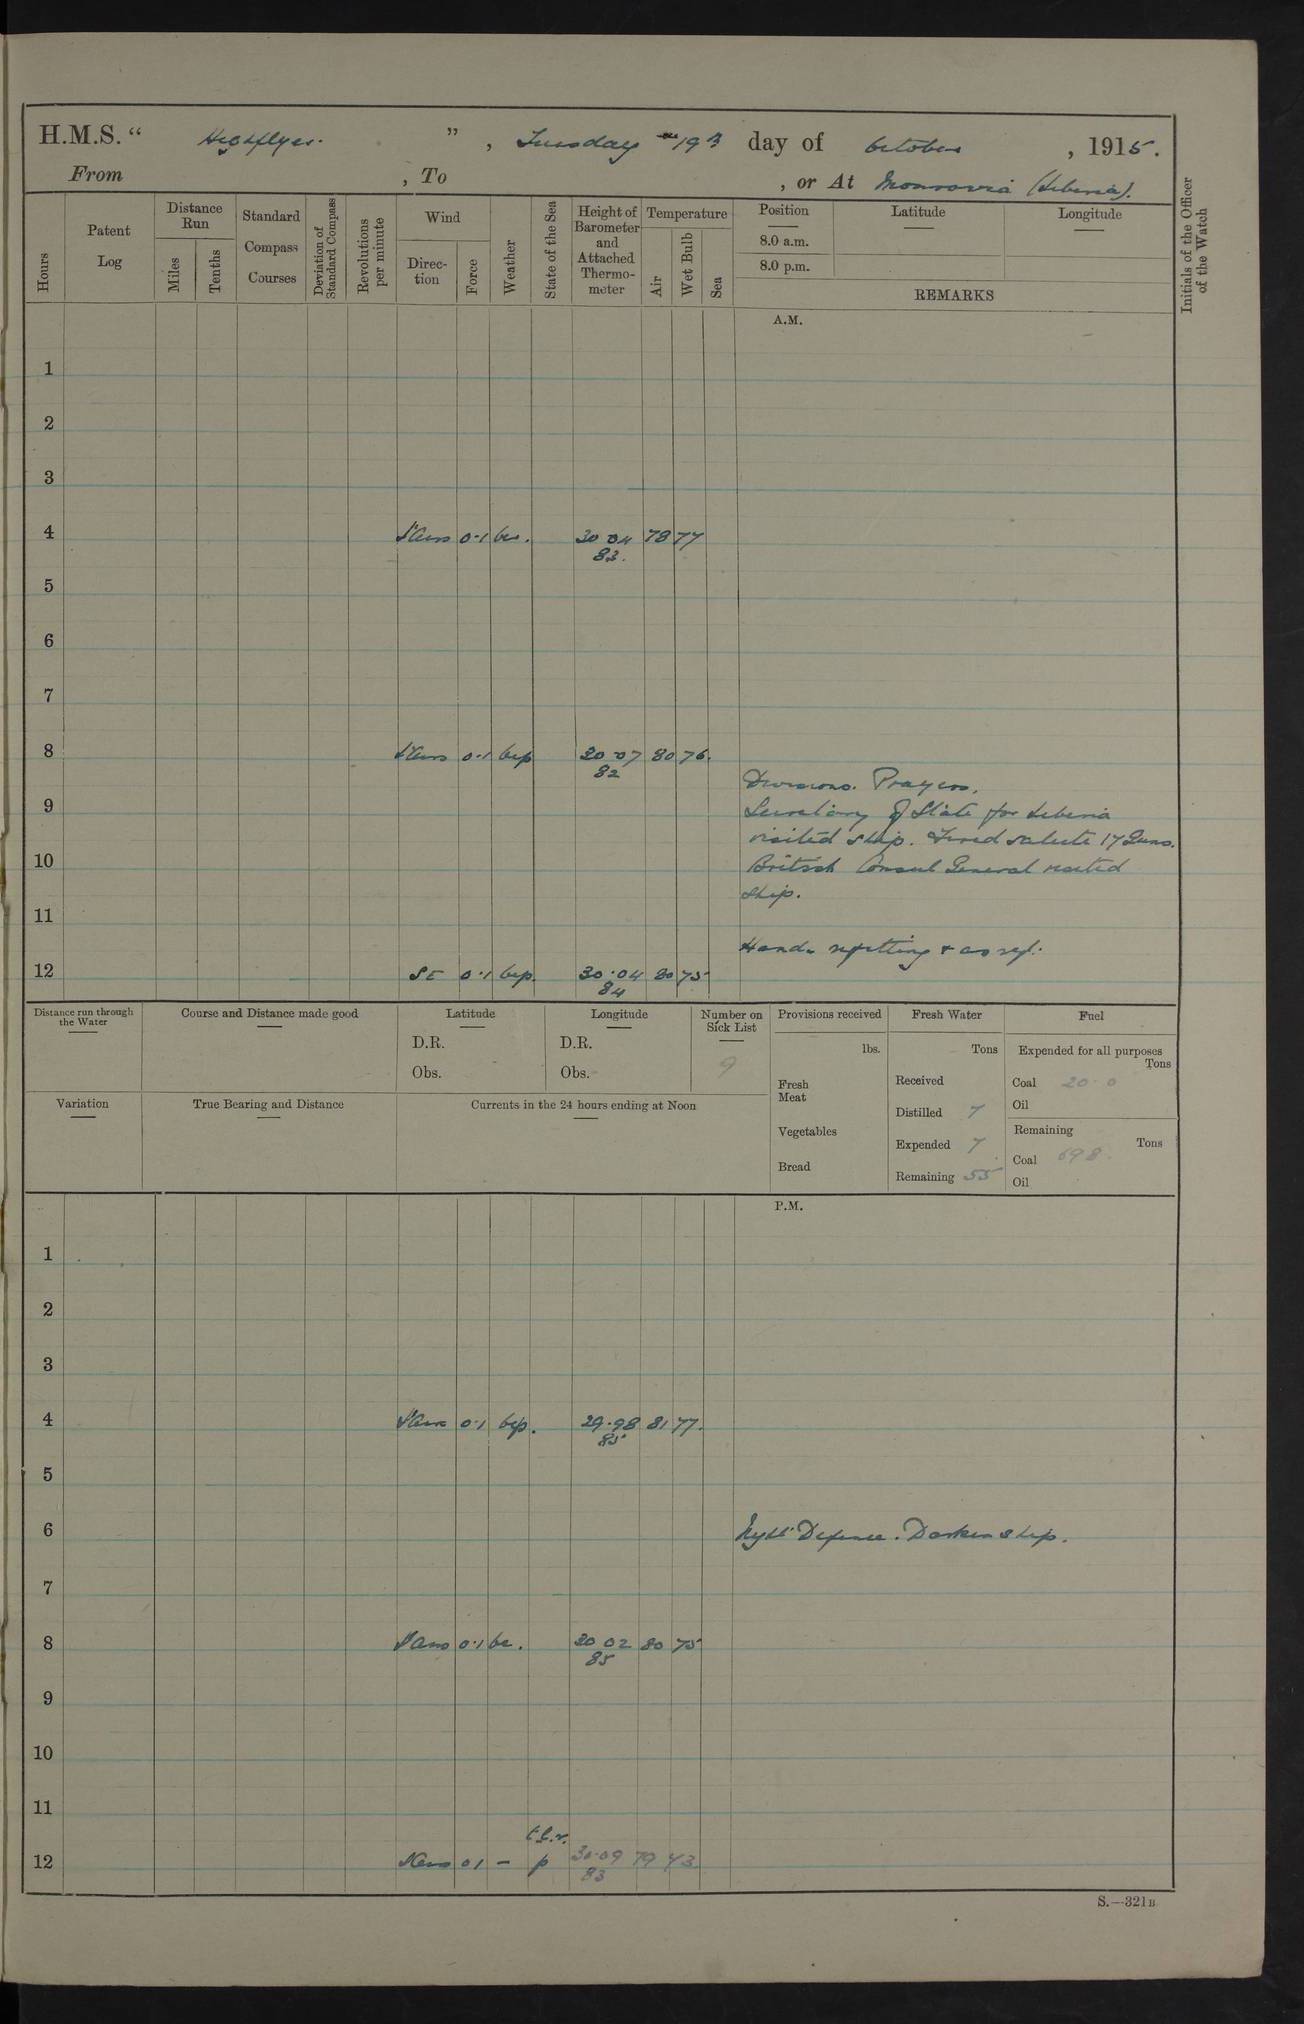 H.M.S. “ Highflyer. ” , Tuesday 19th day of October , 1915.
From , To , or At Monrovia (Liberia).
Hours
Patent Log
Distance Run
Miles
Tenths
Standard Compass Courses
Deviation of Standard Compass
Revolutions per minute
Wind
Direction
Force
Weather
State of the Sea
Height of Barometer and Attached Thermometer
Temperature
Air
Wet Bulb
Sea
Position
8.0 a.m.
8.0 p.m.
Latitude
Longitude
REMARKS
Initials of the Officer of the Watch
A.M.
1
2
3
4 0·1 bc. 30 04 78 77
83.
5
6
7
8 0·1 bcp 30 07 80 76.
82
Divisions. Prayers.
9 Secretary of State for Liberia
visited ship. Fired salute 17 Guns.
10 British Consul General visited
ship.
11
Hands refitting & as req:
12 SE 0·1 bcp. 30·04 80 75
84
Distance run through the Water
Course and Distance made good
Latitude
D.R.
Obs.
Longitude
D.R.
Obs.
Number on Sick List
9
Provisions received
lbs.
Fresh Meat
Vegetables
Bread
Fresh Water
Tons
Received
Distilled 7
Expended 7
Remaining 55
Fuel
Expended for all purposes
Tons
Coal 20·0
Oil
Remaining
Tons
Coal 698.
Oil
Variation
True Bearing and Distance
Currents in the 24 hours ending at Noon
P.M.
1
2
3
4 0·1 bcp. 29·98 81 77.
85
5
6 Night Defence. Darken ship.
7
8 0·1 bc. 30 02 80 75
85
9
10
11
t.l.r.
12 01 – p 30·09 79 73
83
S.—321B